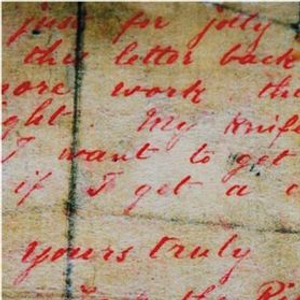 just for jolly
this letter back
more work the
ght. My knife
I want to get
if I get a
Yours truly